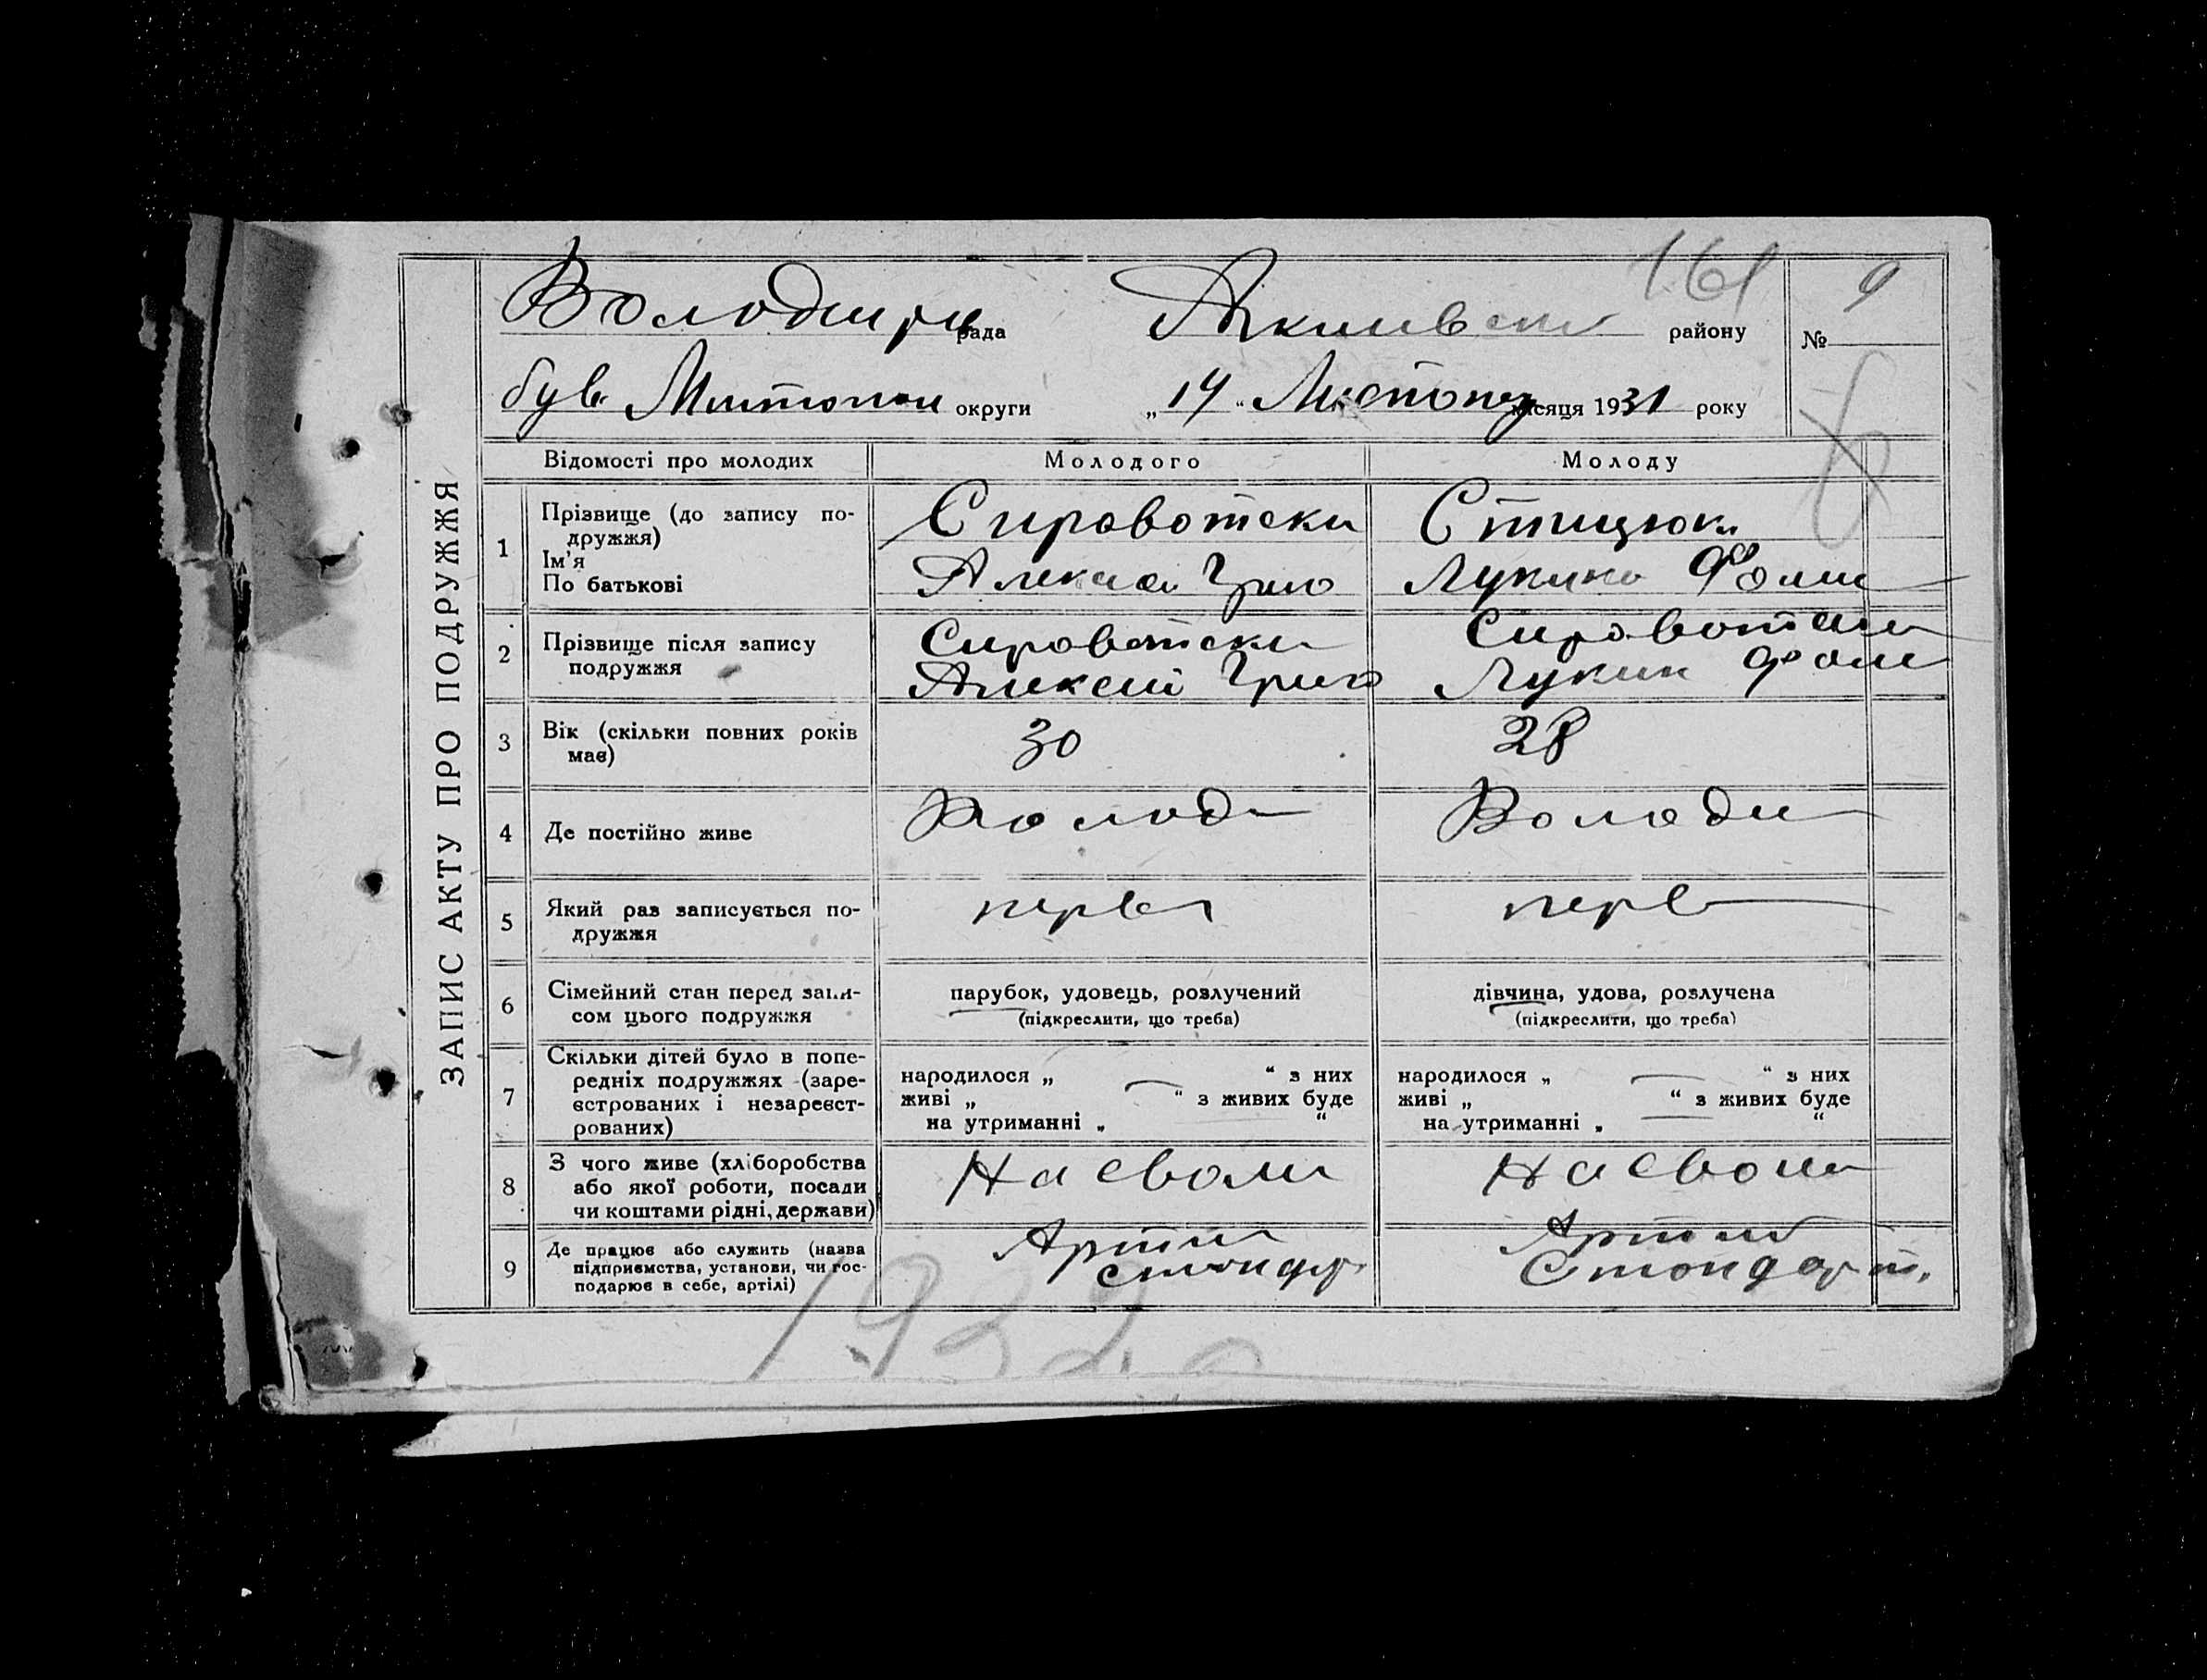 161
Володимри рада Якимівсько району № 9
був. Мелітопол округи „14“ Листопад місяця 1931 року
ЗАПИС АКТУ ПРО ПОДРУЖЖЯ
Відомості про молодих Молодого Молоду
1 Прізвище (до запису подружжя) Сировотски Стицюк
Ім'я
По батькові Алексей Григо Лукина Фоми
2 Прізвище після запису подружжя Сировотски Сировотски
Алексей Григо Лукин Фом
3 Вік (скільки повних років має) 30 28
4 Де постійно живе Волод Володи
5 Який раз записується подружжя перв перв
6 Сімейний стан перед записом цього подружжя парубок, удовець, розлучений дівчина, удова, розлучена
(підкреслити, що треба) (підкреслити, що треба)
7 Скільки дітей було в попередніх подружжях (зареєстрованих і незареєстрованих) народилося „ — “ з них народилося „ — “ з них
живі „ “ з живих буде живі „ “ з живих буде
на утриманні „ — “ на утриманні „ — “
8 З чого живе (хліборобства або якої роботи, посади чи коштами рідні, держави) На свои На свои
9 Де працює або служить (назва підприємства, установи, чи господарює в себе, артілі) Артіли Артіли
Стандар Стандарт.
1932